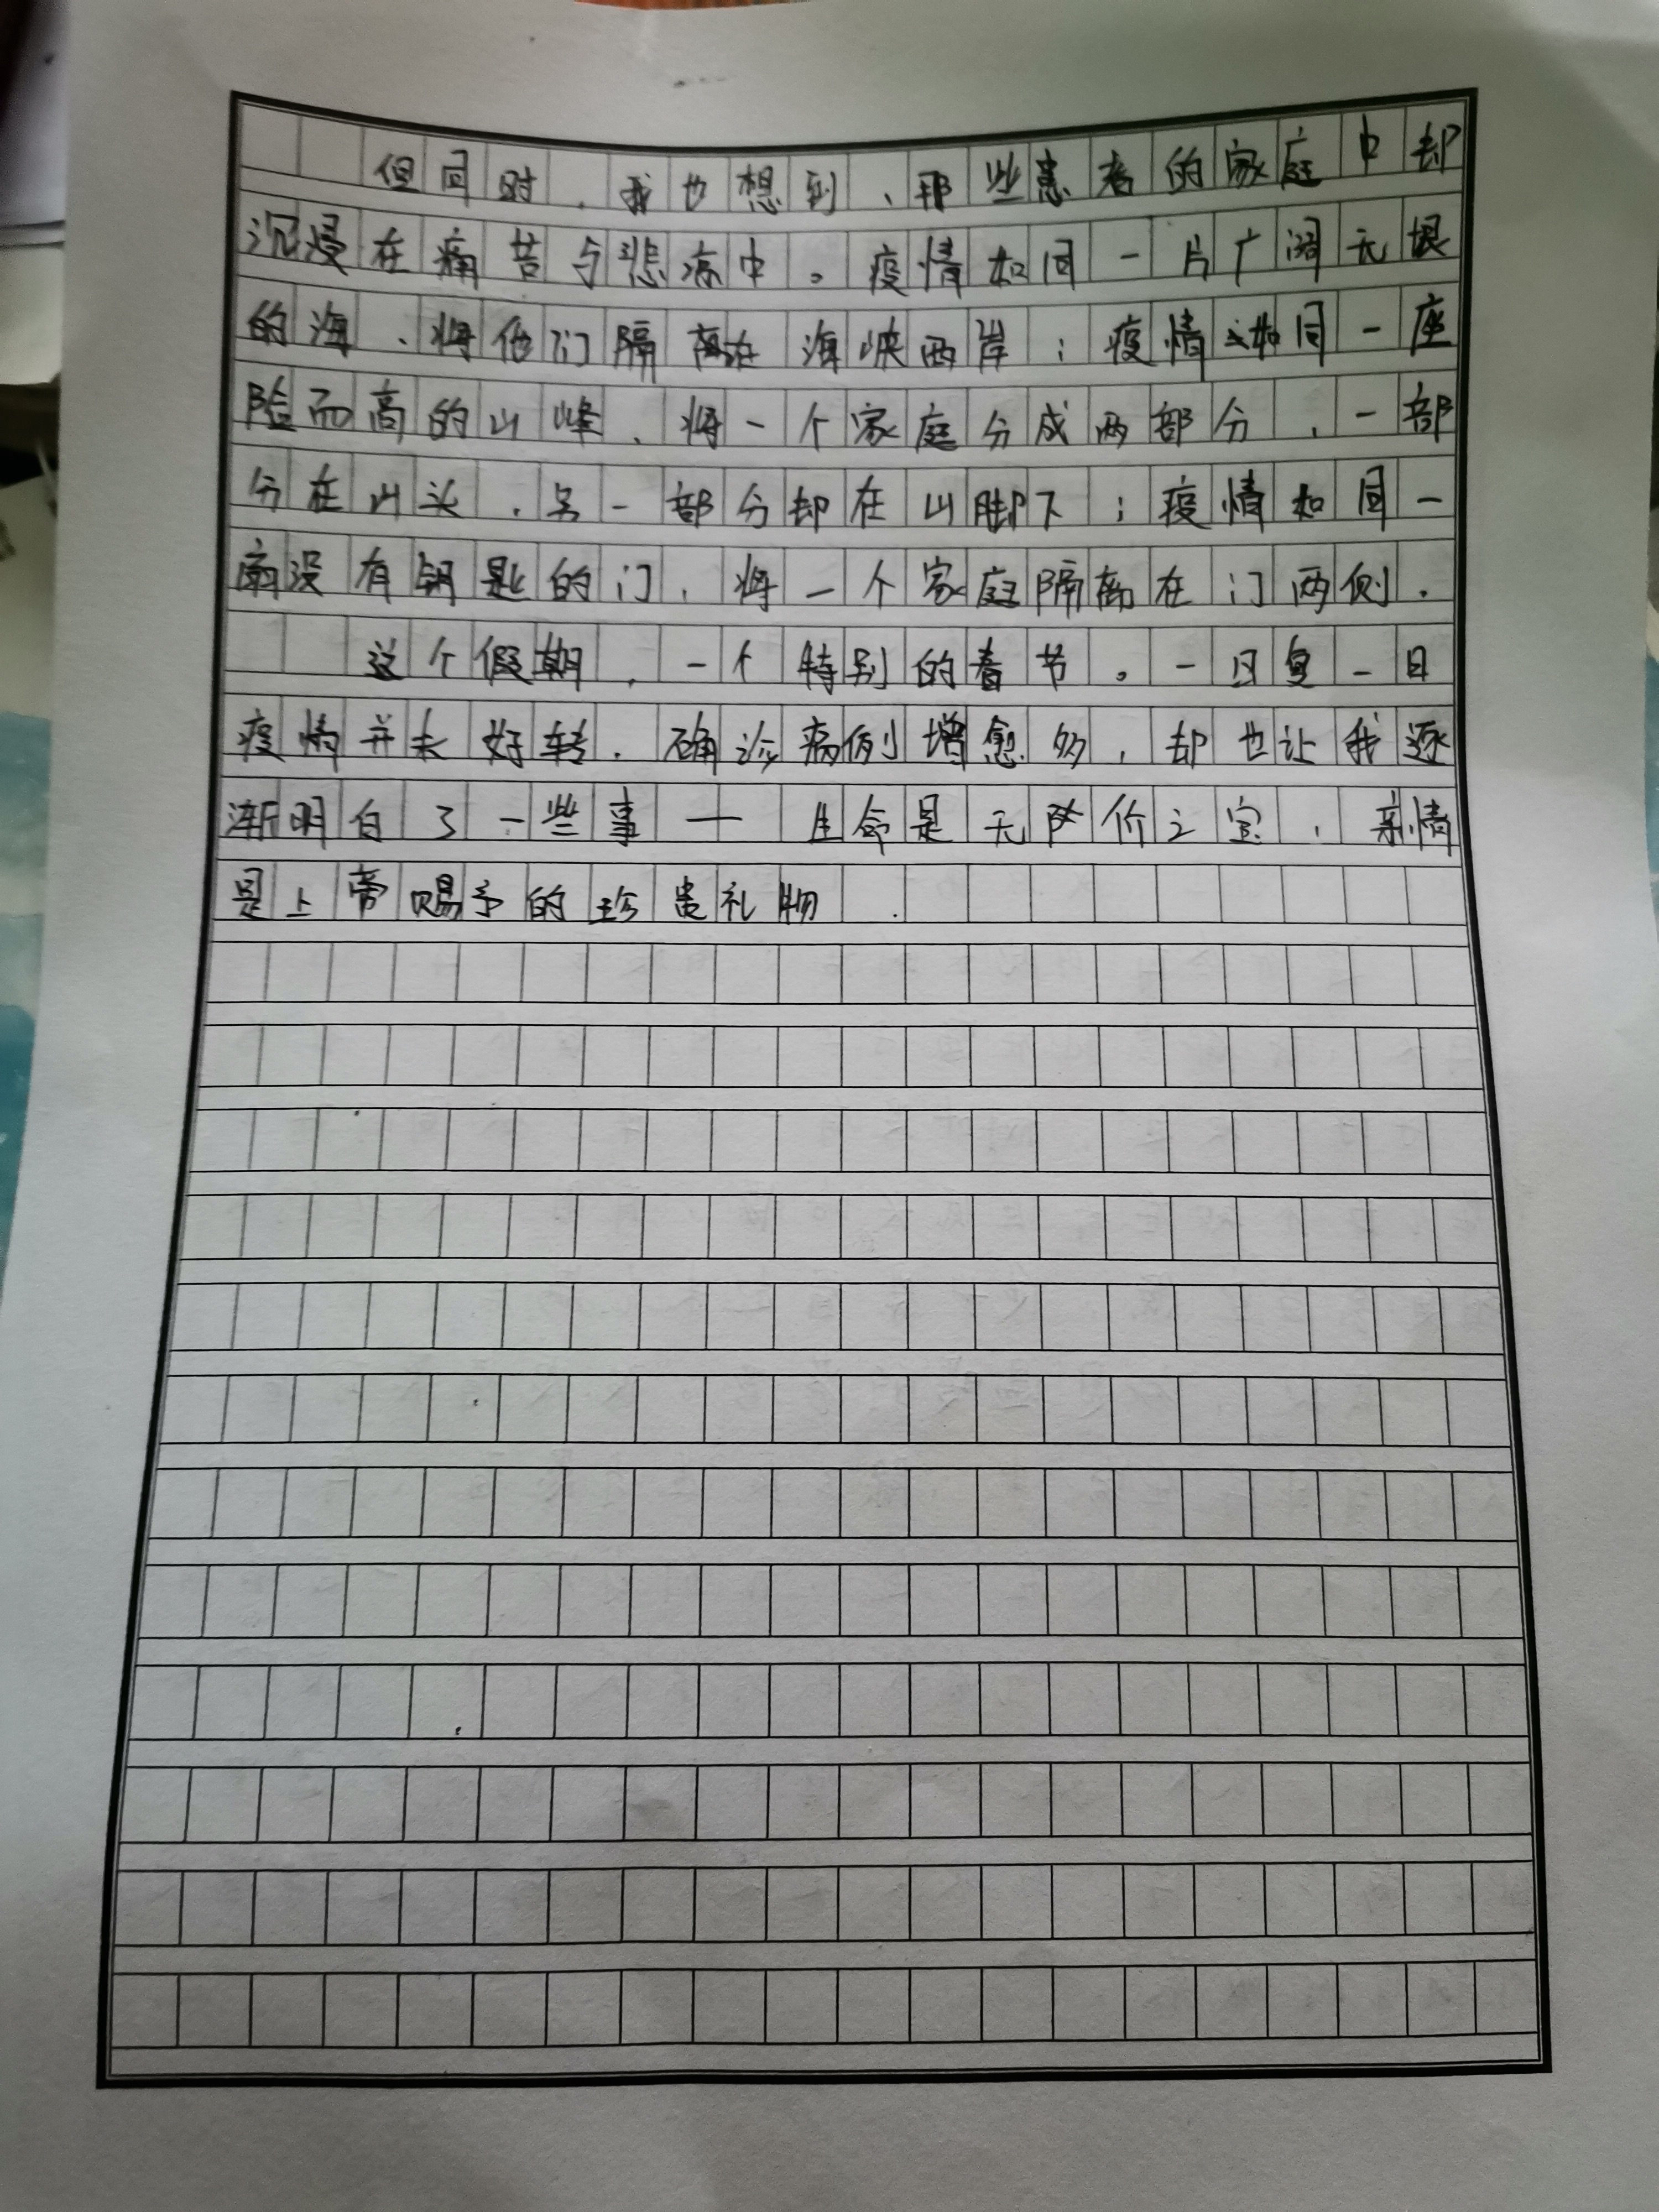 但同时，我也想到，那些患者的家庭中却
沉浸在痛苦与悲痛中。疫情如同一片广阔无垠
的海，将他们隔离在海峡两岸；疫情如同一座
险而高的山峰，将一个家庭分成两部分，一部
分在山头，另一部分却在山脚下；疫情如同一
扇没有钥匙的门，将一个家庭隔离在门两侧.
这个假期，一个特别的春节。一日复一日
疫情并未好转.确诊病例增愈多，却也让我逐
渐明白了一些事——生命是无价之宝，亲情
是上帝赐予的珍贵礼物.